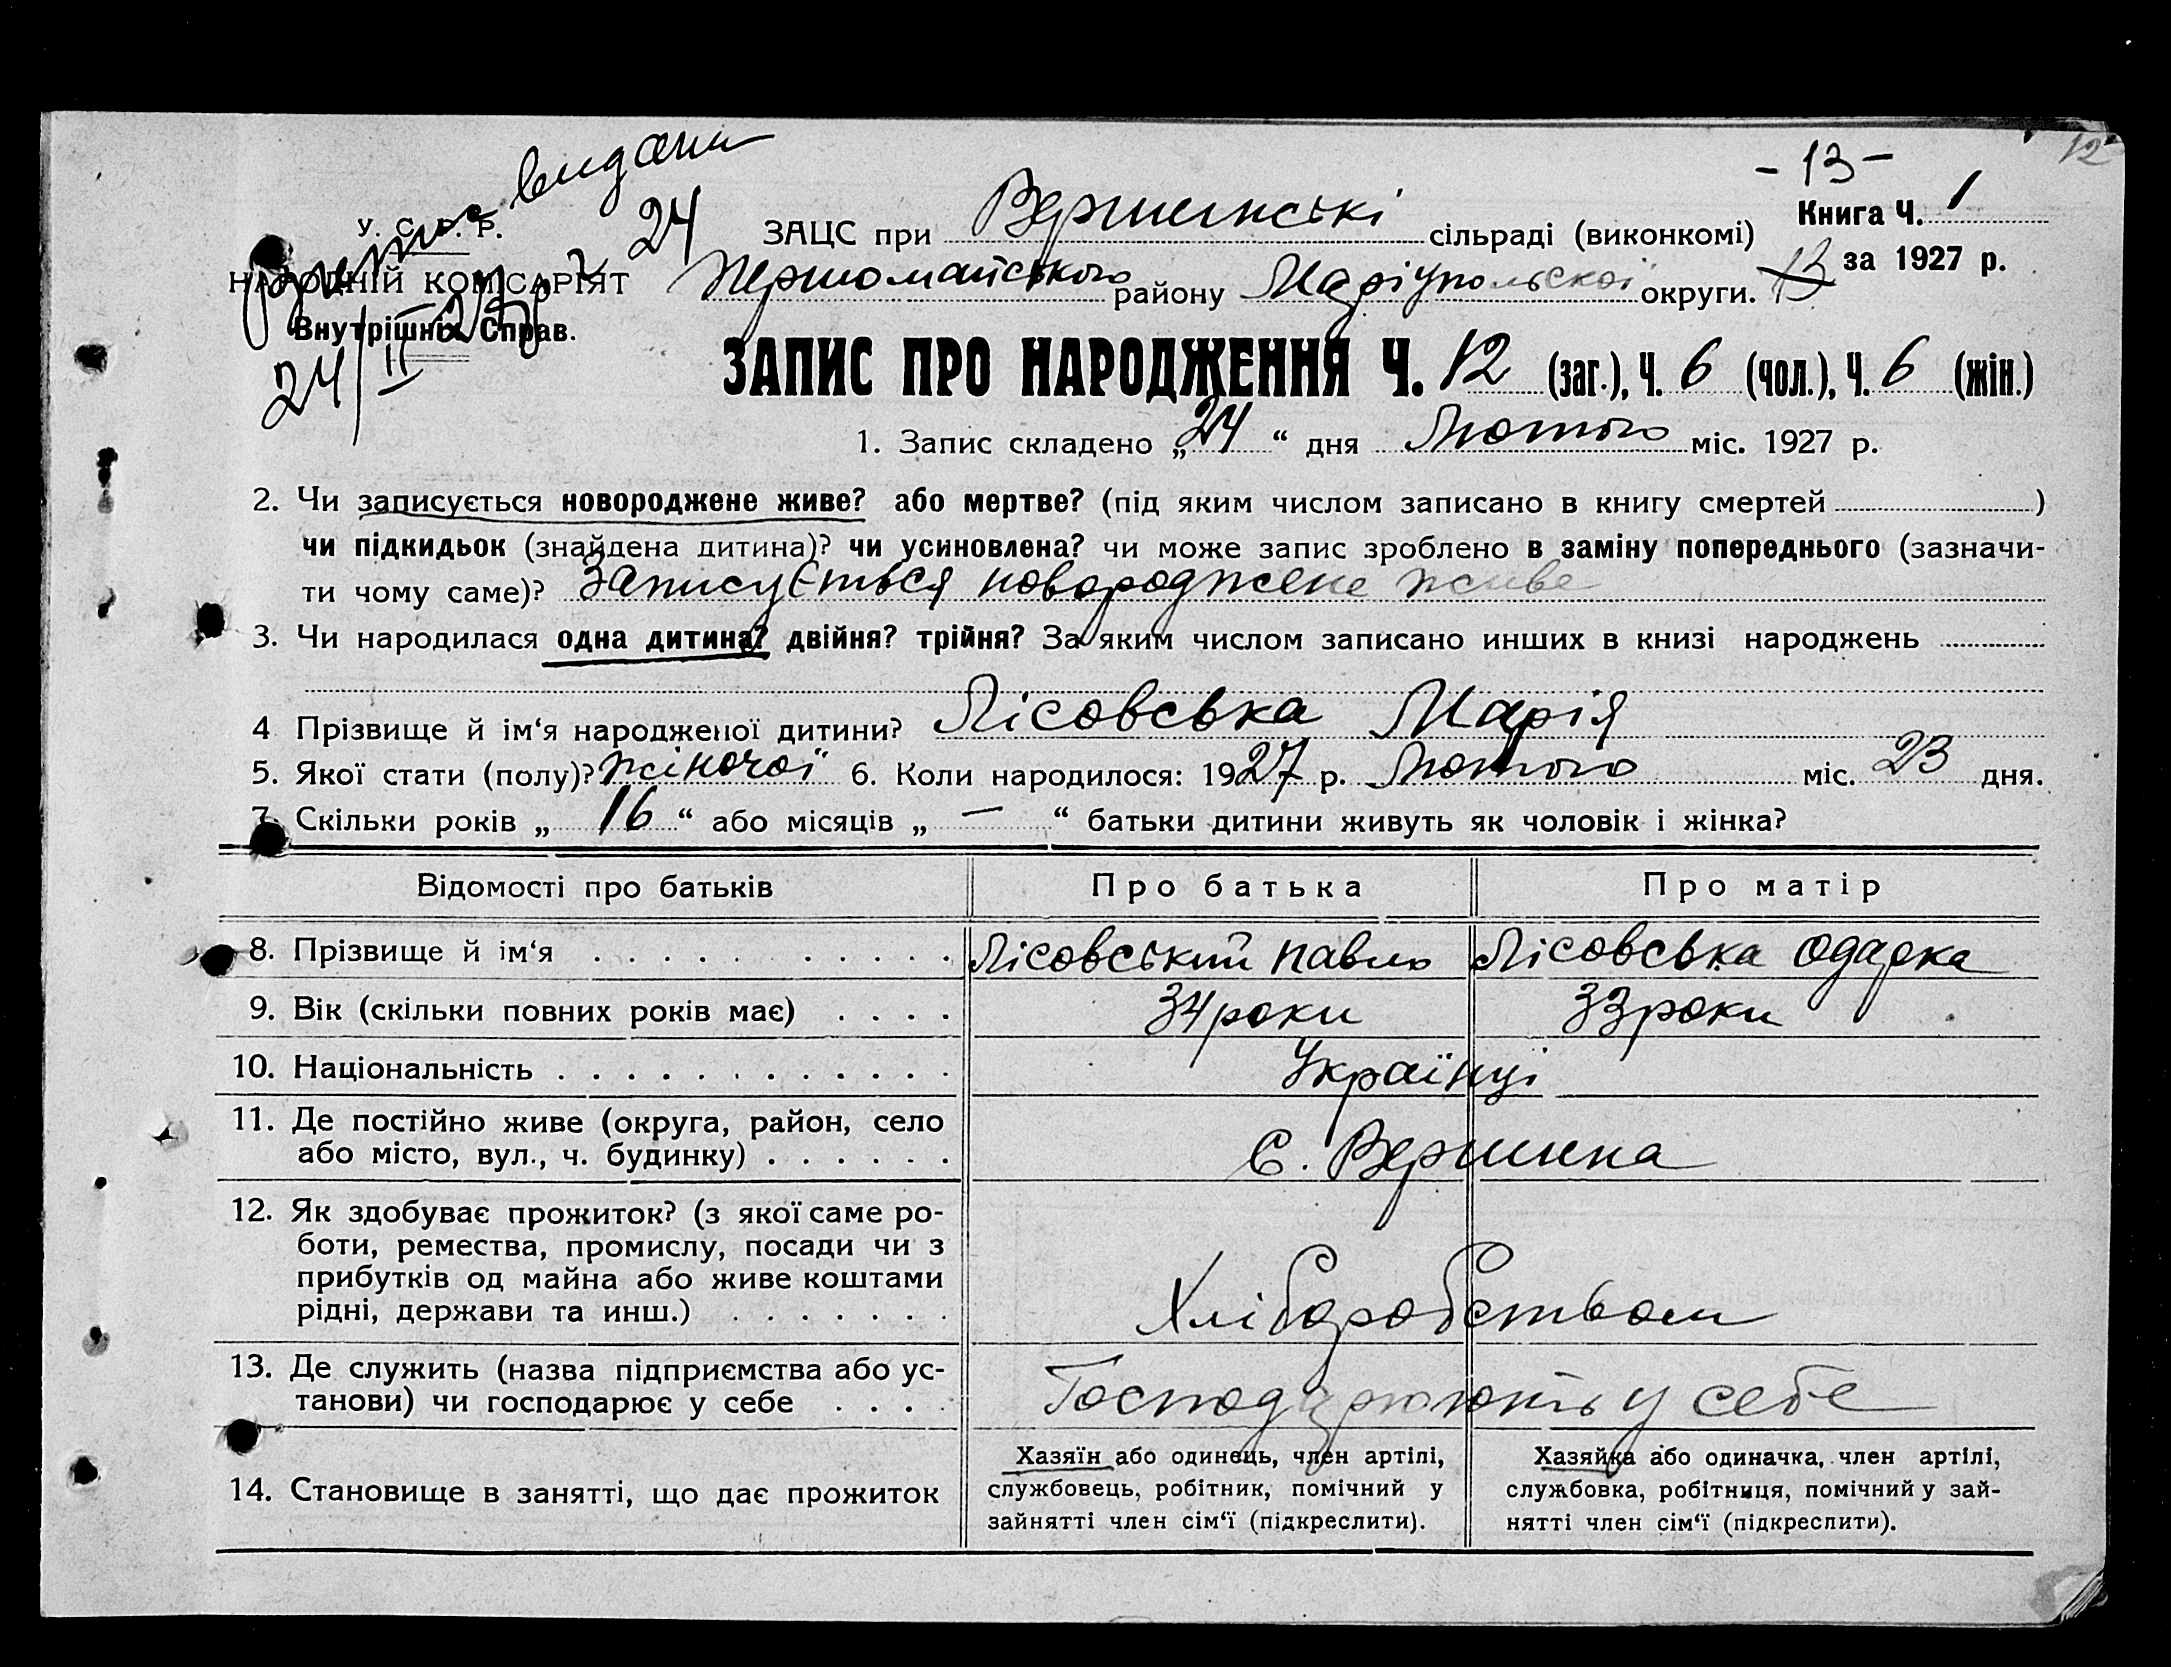 - 13 -
12
видани
У. С. Р. Р.
НАРОДНІЙ КОМІСАРІЯТ
Внутрішніх Справ.
24
24/II
ЗАЦС при Вершинські сільраді (виконкомі)
Книга Ч. 1
Першомайського району Маріупольскої округи.
13 за 1927 р.
ЗАПИС ПРО НАРОДЖЕННЯ Ч. 12 (заг.), Ч. 6 (чол.), Ч. 6 (жін.)
1. Запис складено „ 24 “ дня Лютого міс. 1927 р.
2. Чи записується новороджене живе? або мертве? (під яким числом записано в книгу смертей )
чи підкидьок (знайдена дитина)? чи усиновлена? чи може запис зроблено в заміну попереднього (зазначи-
ти чому саме)? Записується новороджене живе
3. Чи народилася одна дитина? двійня? трійня? За яким числом записано инших в книзі народжень
4 Прізвище й ім‘я народженої дитини? Лісовська Марія
5. Якої стати (полу)? жіночої 6. Коли народилося: 1927 р. Лютого міс. 23 дня.
7. Скільки років „ 16 “ або місяців „ — “ батьки дитини живуть як чоловік і жінка?
Відомості про батьків Про батька Про матір
8. Прізвище й ім‘я . . . . . . . . . . . Лісовський Павло Лісовська Одарка
9. Вік (скільки повних років має) . . . . 34 роки 33 роки
10. Національність . . . . . . . . . . . . Українці
11. Де постійно живе (округа, район, село
або місто, вул., ч. будинку) . . . . . . с. Вершина
12. Як здобуває прожиток? (з якої саме ро-
боти, ремества, промислу, посади чи з
прибутків од майна або живе коштами
рідні, держави та инш.) . . . . . . . Хліборобством
13. Де служить (назва підприємства або ус-
танови) чи господарює у себе . . . . Господарюють у себе
14. Становище в занятті, що дає прожиток
Хазяїн або одинець, член артілі,
службовець, робітник, помічний у
зайнятті член сім‘ї (підкреслити).
Хазяйка або одиначка, член артілі,
службовка, робітниця, помічний у зай-
нятті член сім‘ї (підкреслити).